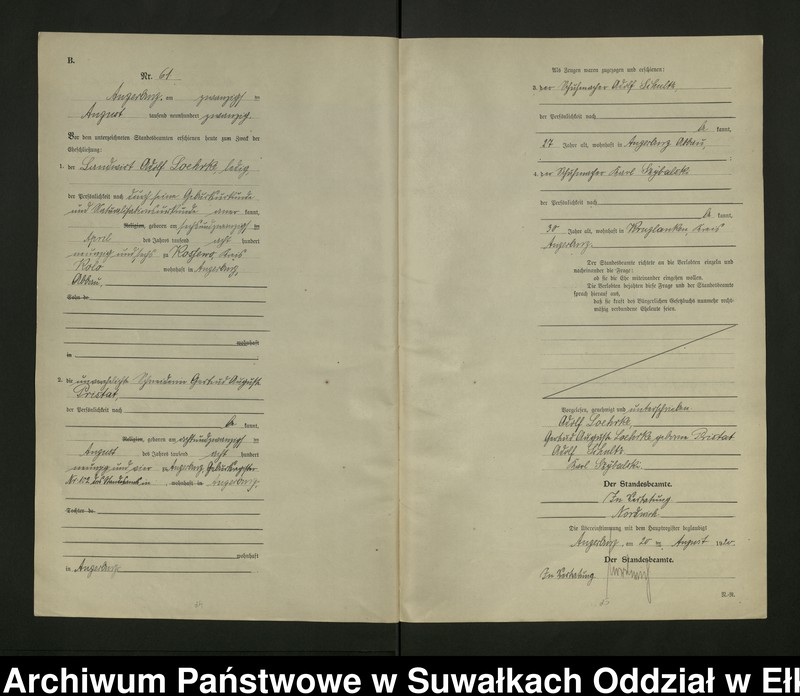 B.
Nr. 61
Angerburg, am zwanzigsten
August tausend neunhundert zwanzig.
Vor dem unterzeichneten Standesbeamten erschienen heute zum Zweck der
Eheschließung:
1. der Landwirt Adolf Loehrke, ledig
der Persönlichkeit nach durch seine Geburtsurkunde
und Naturalisationsurkunde anerkannt,
Religion, geboren am sechsundzwanzigsten
April des Jahres tausend acht hundert
neunzig und sechs zu Kreis
Kolo wohnhaft in Angerburg,
Abbau,
Sohn de
wohnhaft
in
2. die unverehelichte Schneiderin Gertrud Auguste
Pristat,
der Persönlichkeit nach
kannt,
Religion, geboren am achtundzwanzigsten
August des Jahres tausend acht hundert
neunzig und vier zu Angerburg Geburtsregister
Nr. 112 des Standesamts in wohnhaft in Angerburg,
Tochter de
wohnhaft
in Angerburg
Als Zeugen waren zugezogen und erschienen:
3. der Schuhmacher Adolf Schultz,
der Persönlichkeit nach
kannt,
27 Jahre alt, wohnhaft in Angerburg Abbau,
4. der Schuhmacher Karl Szybalski
der Persönlichkeit nach
kannt,
30 Jahre alt, wohnhaft in Kreis
Angerburg.
Der Standesbeamte richtete an die Verlobten einzeln und
nacheinander die Frage:
ob sie die Ehe miteinander eingehen wollen.
Die Verlobten bejahten diese Frage und der Standesbeamte
sprach hierauf aus,
daß sie kraft des Bürgerlichen Gesetzbuchs nunmehr recht-
mäßig verbundene Eheleute seien.
Vorgelesen, genehmigt und unterschrieben
Adolf Loehrke,
Gertrud Auguste Loehrke geborene Pristat
Adolf Schultz
Karl Szybalski
Der Standesbeamte.
In Vertretung
Die Übereinstimmung mit dem Hauptregister beglaubigt
Angerburg, am 20 ten August 1920.
Der Standesbeamte.
In Vertretung
N.-R.
Archiwum Państwowe w Suwałkach Oddział w Eł